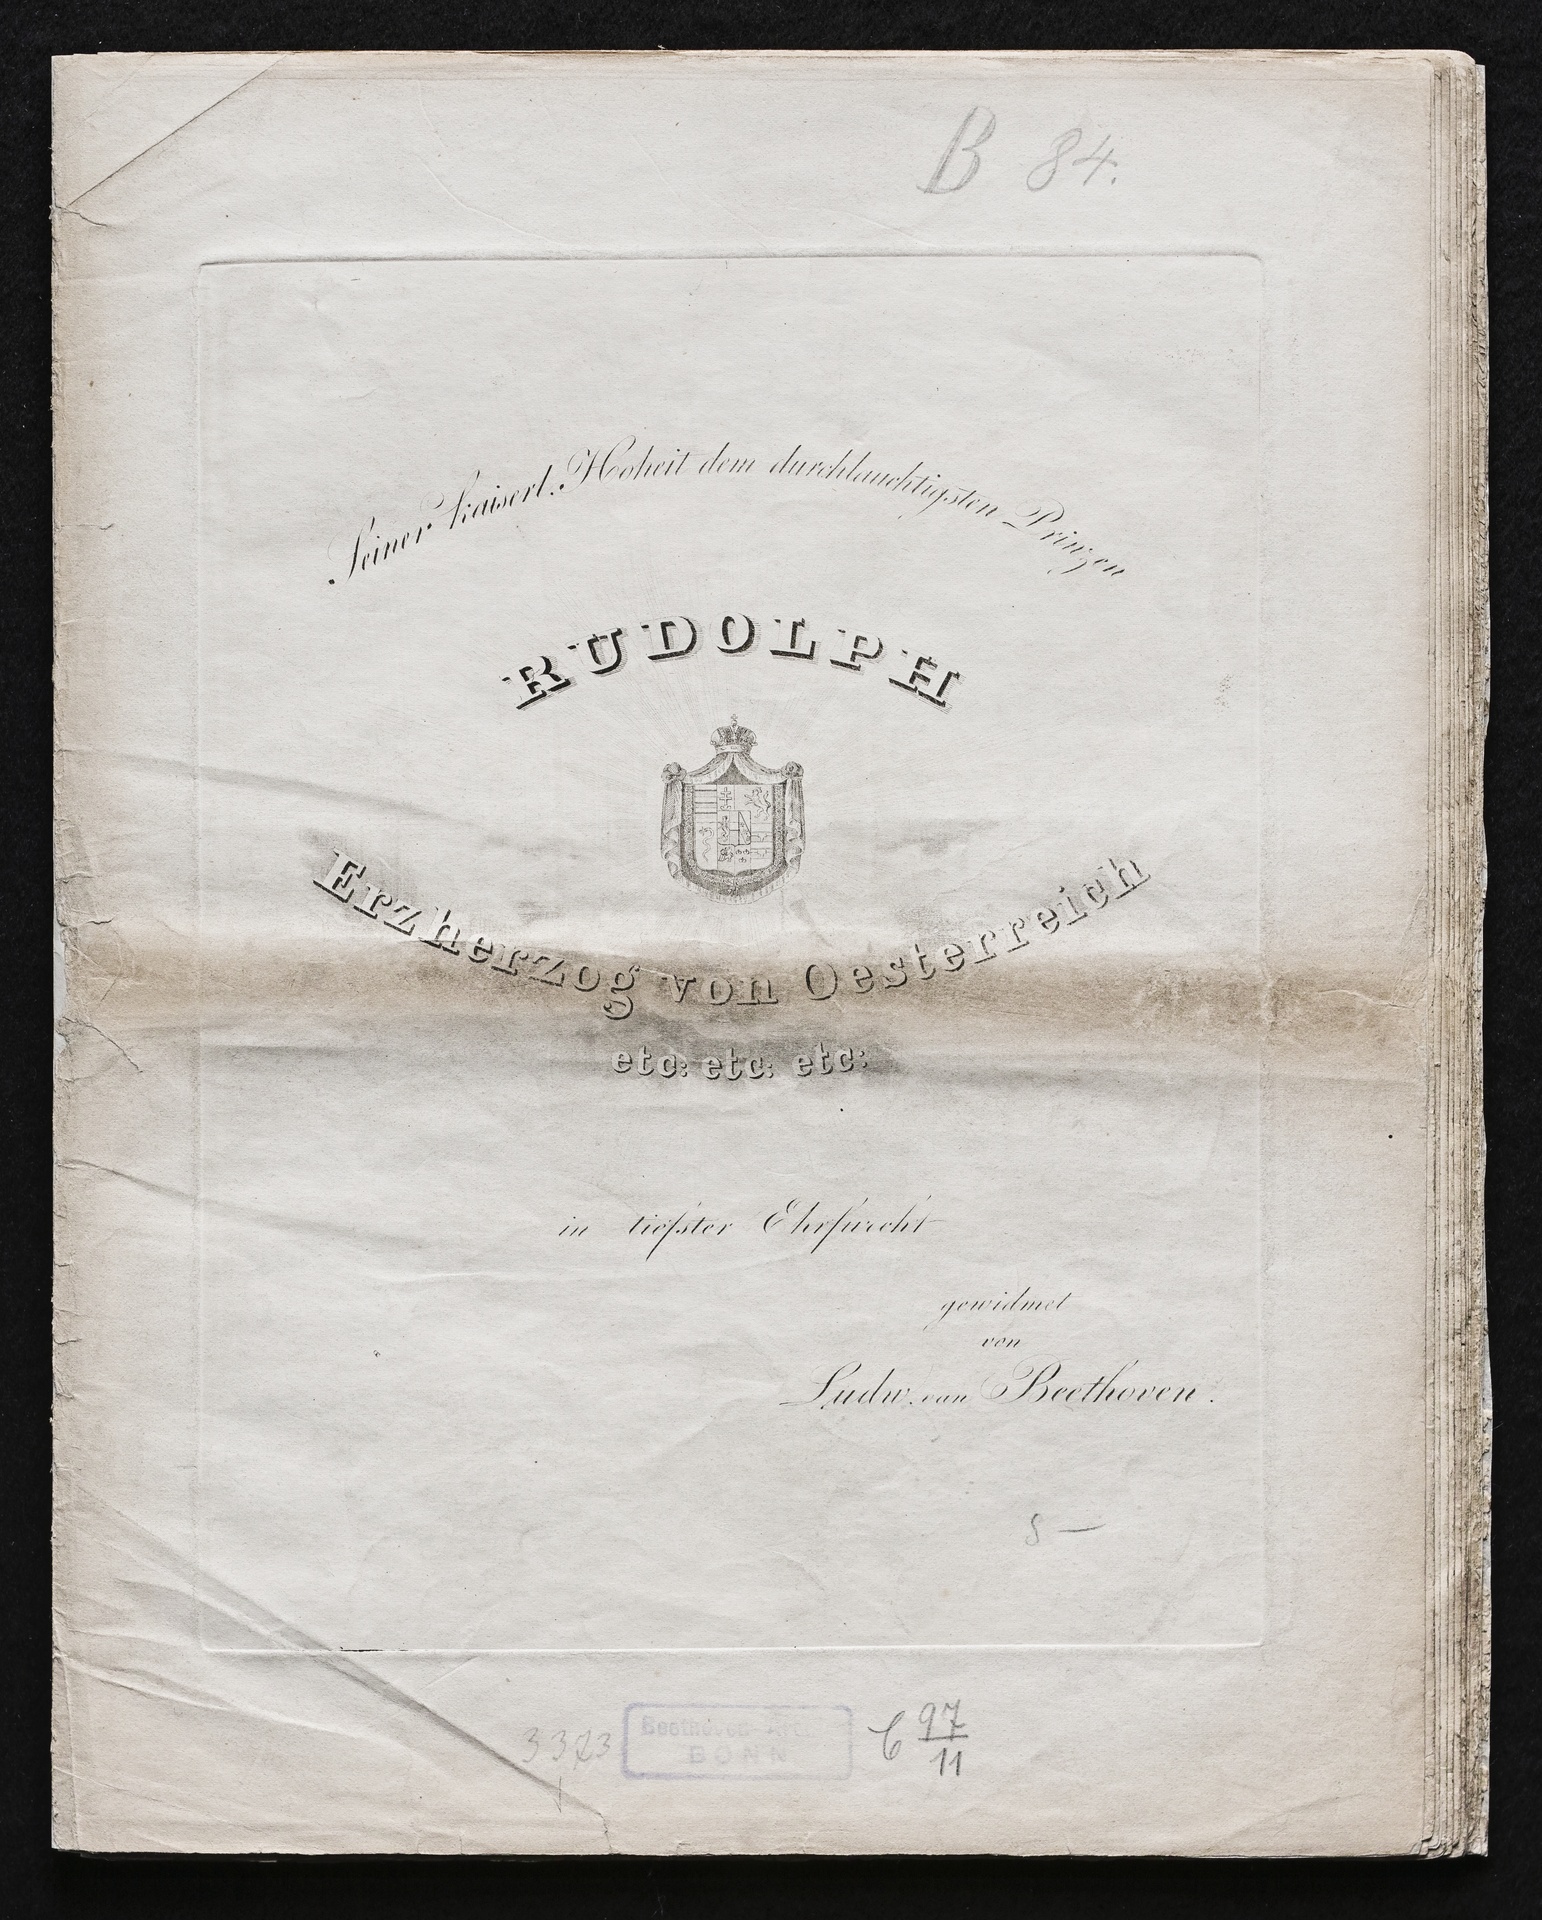 B 84.
Seiner kaiserl. Hoheit dem durchlauchtigsten Prinzen
RUDOLPH
Erzherzog von Oesterreich
etc: etc: etc:
in tiefster Ehrfurcht
gewidmet
von
Ludw. van Beethoven.
Beethoven
BONN
C 97
11